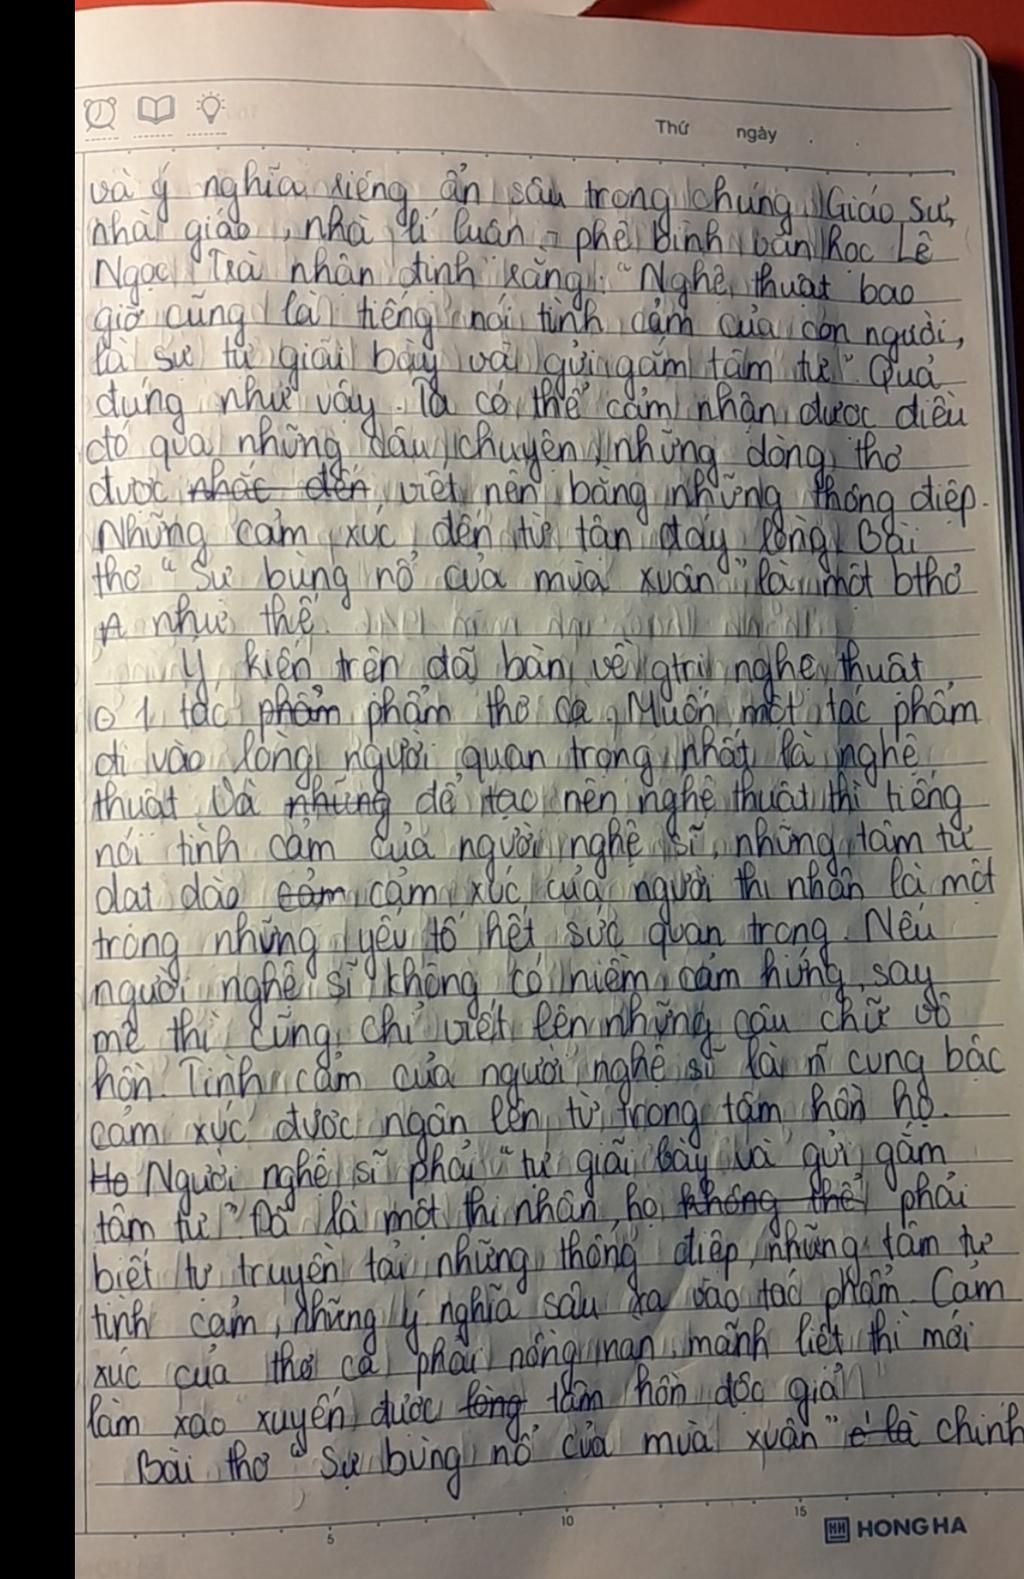 Thứ ngày
và ý nghĩa riêng ẩn sâu trong chúng. Giáo sư,
nhà giáo, nhà lí luận - phê bình văn học Lê
Ngọc Trà nhận định rằng: "Nghệ thuật bao
giờ cũng là tiếng nói tình cảm của con người,
là sự tự giãi bày và gửi gắm tâm tư". Quả
đúng như vậy. Ta có thể cảm nhận được điều
đó qua những câu chuyện, những dòng thơ
được nhắc đến viết nên bằng những thông điệp.
Những cảm xúc đến từ tận đáy lòng. Bài
thơ "Sự bùng nổ của mùa xuân" là một bthơ
như thế.
Ý kiến trên đã bàn về gtrị nghệ thuật
1 tác phẩm phẩm thơ ca. Muốn một tác phẩm
đi vào lòng người quan trọng nhất là nghệ
thuật. Và những để tạo nên nghệ thuật thì tiếng
nói tình cảm của người nghệ sĩ, những tâm tư
dạt dào cảm cảm xúc của người thi nhân là một
trong những yếu tố hết sức quan trọng. Nếu
người nghệ sĩ không có niềm cảm hứng, say
mê thì cũng chỉ viết lên những câu chữ vô
hồn. Tình cảm của người nghệ sĩ là n~ cung bậc
cảm xúc được ngân lên từ trong tâm hồn họ.
Họ Người nghệ sĩ phải "tự giãi bày và gửi gắm
tâm tư". Đã là một thi nhân, họ không thể phải
biết tự truyền tải những thông điệp, những tâm tư
tình cảm, những ý nghĩa sâu xa vào tác phẩm. Cảm
xúc của thơ ca phải nồng nàn, mãnh liệt thì mới
làm xao xuyến được lòng tâm hồn độc giả.
Bài thơ "Sự bùng nổ của mùa xuân" là chính
5 10 15
HH HONG HA